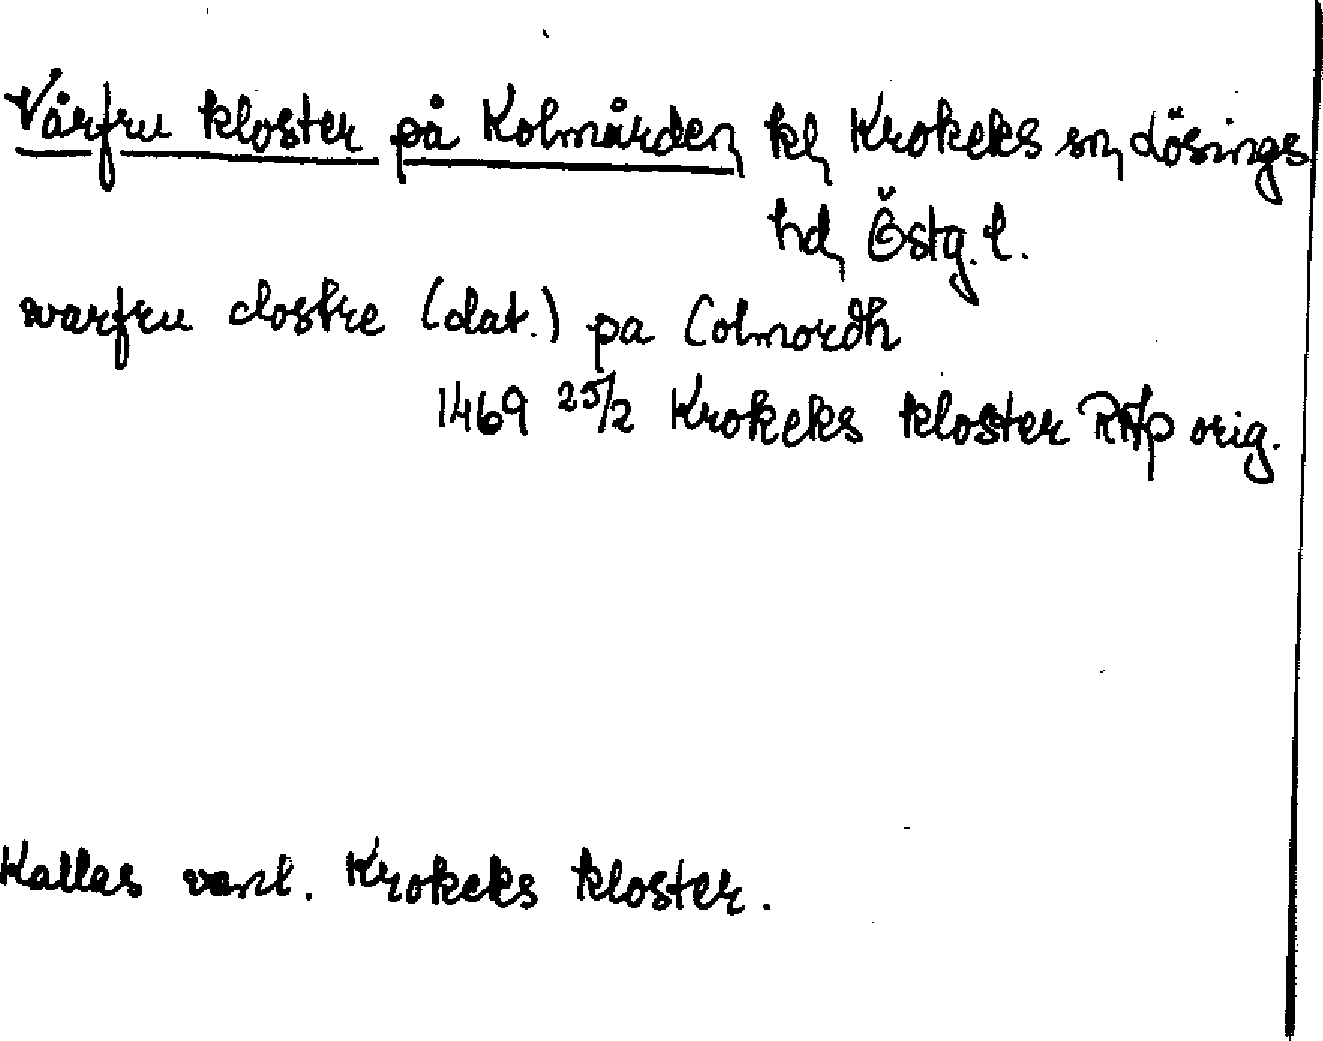 Vårfru kloster på Kolmården, kl, Krokeks sn, Lösings
hd, Östg. l.
warfru clostre (dat.) pa Colmordh
1469 25/2 Krokeks kloster RAp orig.
Kallas vanl. Krokeks kloster.